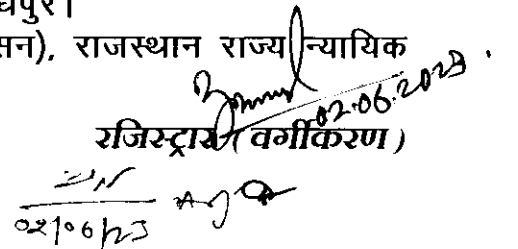 धपुर।
सन), राजस्थान राज्य न्यायिक
02.06.2023
रजिस्ट्रार (वर्गीकरण)
02/06/23